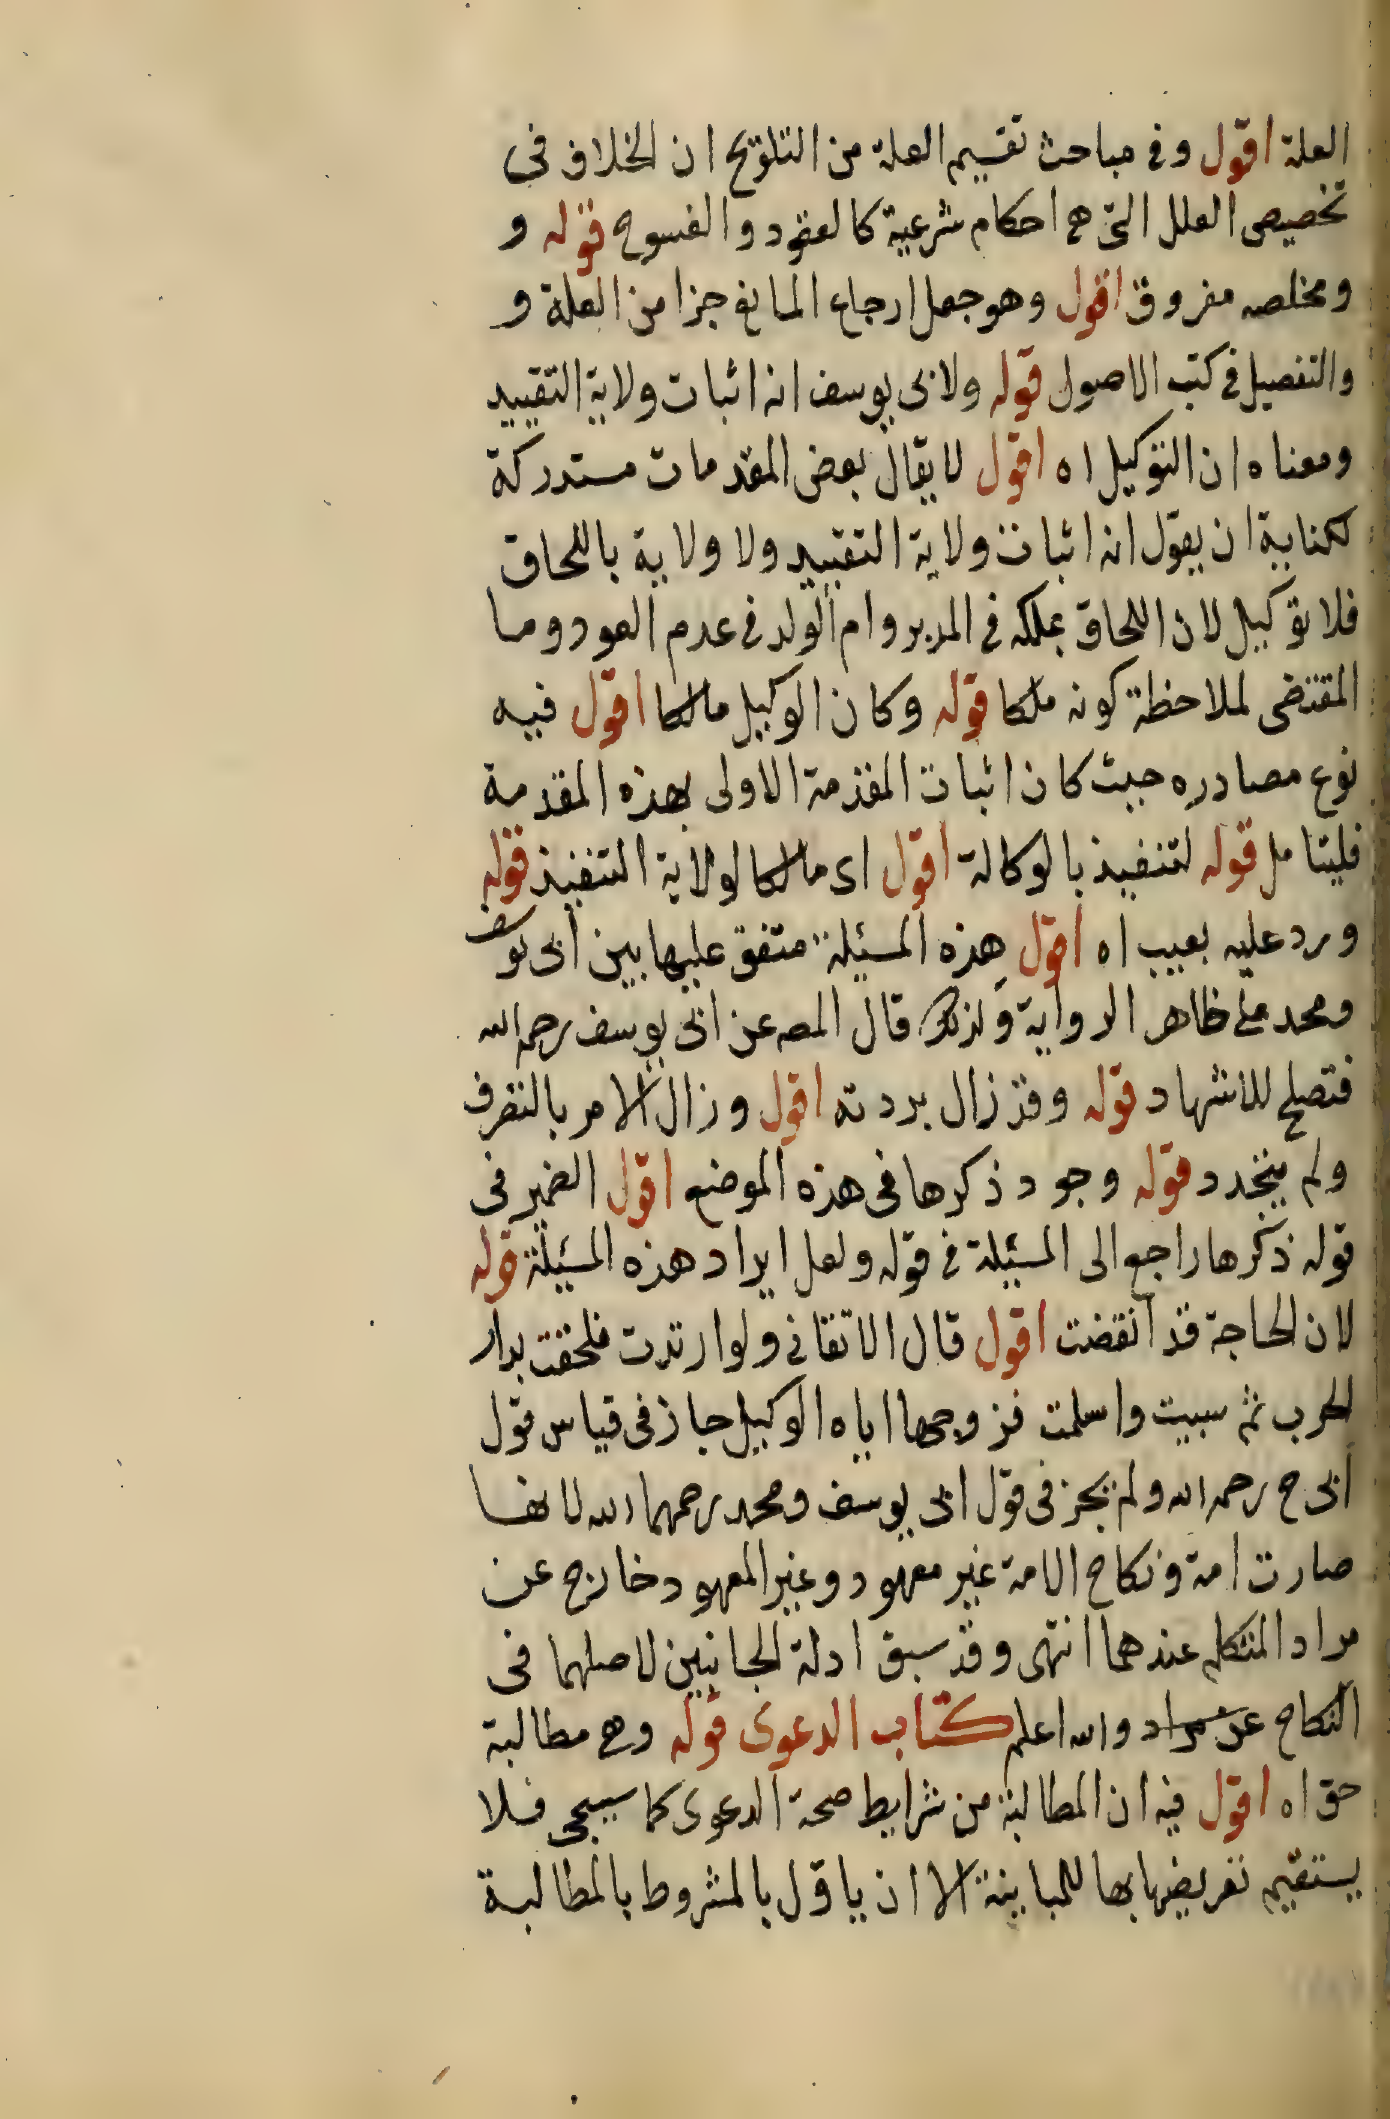 العلة اقول وفى مباحث تقسيم العلة من التلويح ان الخلاف فى
تخصيص العلل التى هى احكام شرعية كالعقود والفسوح قوله و
ومخلصه معروف اقول وهو جعل ارجاع المانع جزا من العلة و
والتفصيل فى كتب الاصول قوله ولابى يوسف انه اثبات ولاية التقييد
ومعناه ان التوكيل اه اقول لا يقال بعض المقدمات مستدركة
لكفاية ان يقول انه اثبات ولاية التقييد ولا ولاية باللحاق
فلا توكيل لان اللحاق بملكه فى المدبر وام الولد فى عدم العود وما
المقتضى لملاحظة كونه ملكا قوله وكان الوكيل مالكا اقول فيه
نوع مصادره حيث كان اثبات المقدمة الاولى بهذه المقدمة
فليتامل قوله لتنفيذ بالوكالة اقول اى مالكا لولاية التنفيذ قوله
ورد عليه بعيب اه اقول هذه المسئلة متفق عليها بين ابى يوسف
ومحمد على ظاهر الرواية ولذلك قال المصه عن ابى يوسف رحمه الله
فتصلح للاشهاد قوله وقد زال بردته اقول وزال الامر بالتصرف
ولم يتجدد قوله وجود ذكرها فى هذه الموضع اقول الضمير فى
قوله ذكرها راجع الى المسئلة فى قوله ولعل ايراد هذه المسئلة قوله
لان الحاجة قد انقضت اقول قال الاتقانى ولو ارتدت فلحقت بدار
الحرب ثم سبيت واسلمت فزوجها اياه الوكيل جاز فى قياس قول
ابى ح رحمه الله ولم يجز فى قول ابى يوسف ومحمد رحمهما الله لانها
صارت امة ونكاح الامة غير معهود وغير المعهود خارج عن
مراد المتكلم عندهما انتهى وقد سبق ادلة الجانبين لاصلهما فى
النكاح عن مراد والله اعلم كتاب الدعوى قوله وهى مطالبة
حق اه اقول فيه ان المطالبة من شرايط صحة الدعوى كما سيجى فلا
يستقيم تعريفها بها للمباينة الا ان ياول بالمشروط بالمطالبة